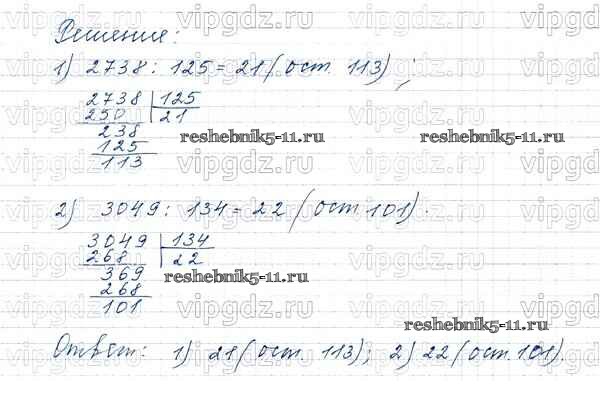 Решение:
1) 2738 : 125 = 21 (ост. 113) ;
2738 125
250 21
238
125
113
reshebnik5-11.ru
reshebnik5-11.ru
2) 3049 : 134 = 22 (ост 101).
3049 134
268 22
369
268
101
reshebnik5-11.ru
reshebnik5-11.ru
Ответ: 1) 21 (ост. 113); 2) 22 (ост. 101).
vipgdz.ru vipgdz.ru vipgdz.ru vipgdz.ru